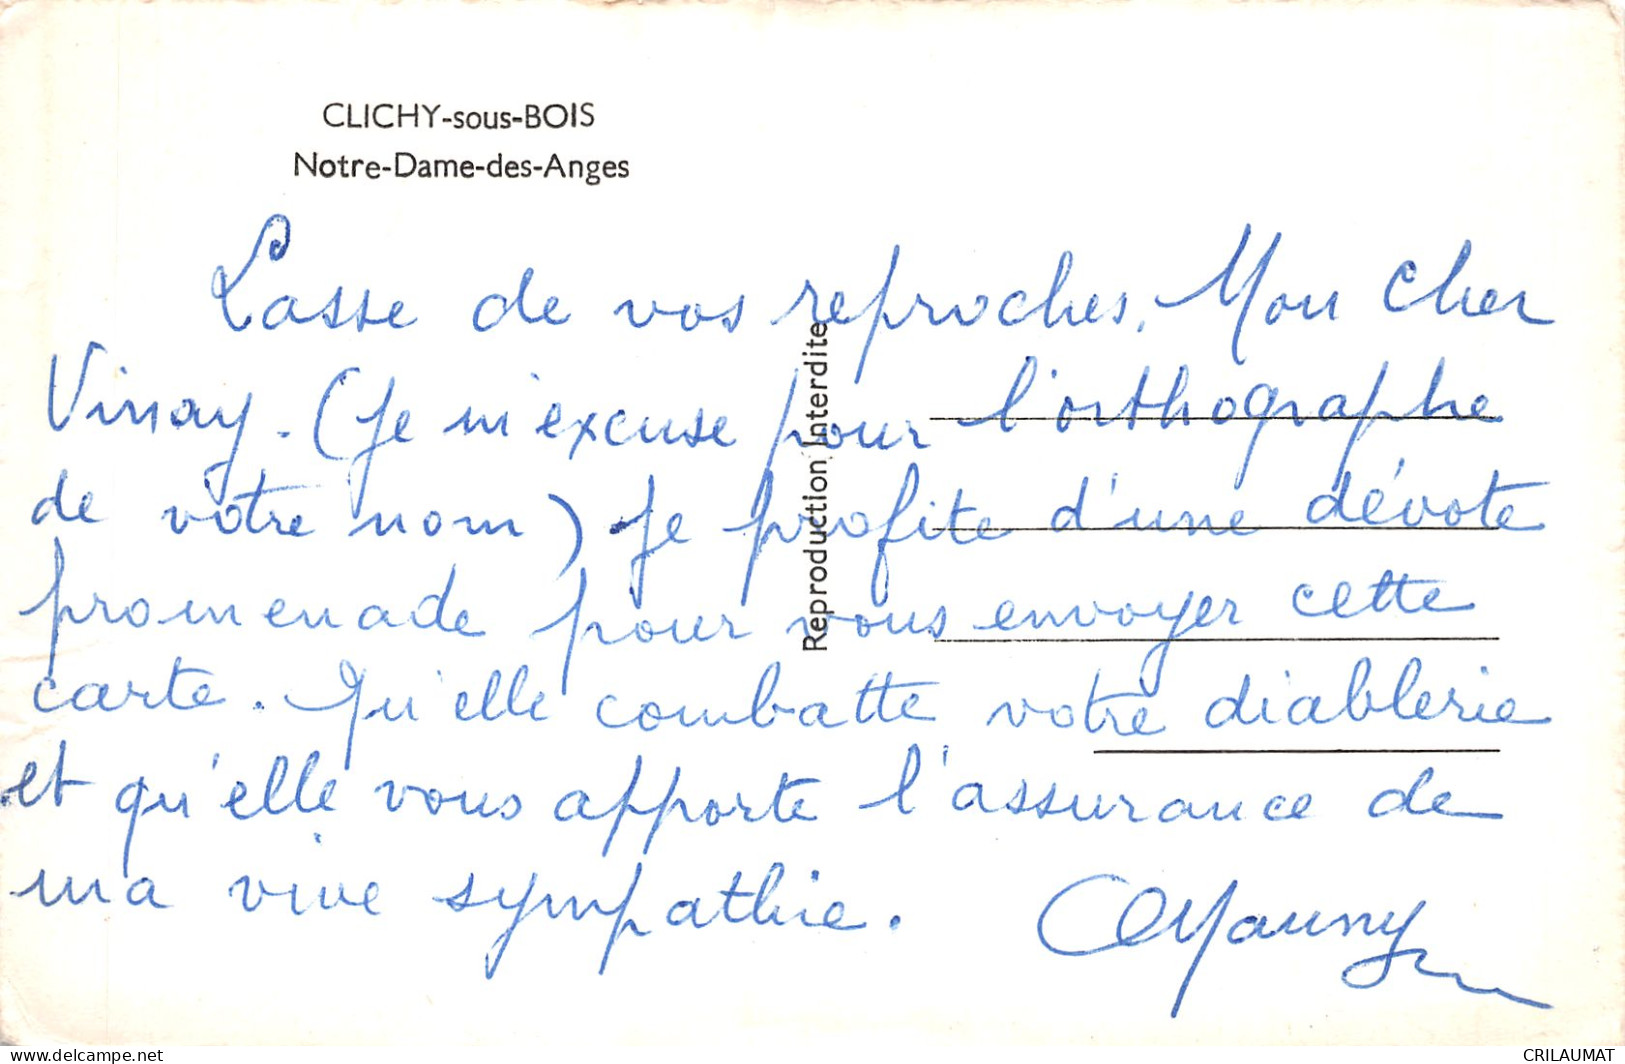 CLICHY-sous-BOIS
Notre-Dame-des-Anges
Lasse de vos reproches, Mon Cher
Vinay. (Je m'excuse pour l'orthographe
de votre nom) Je profite d'une dévote
promenade pour vous envoyer cette
carte. Qu'elle combatte votre diablerie
et qu'elle vous apporte l'assurance de
ma vive sympathie.
Mauny
Reproduction Interdite
delcampe.net
CRILAUMAT